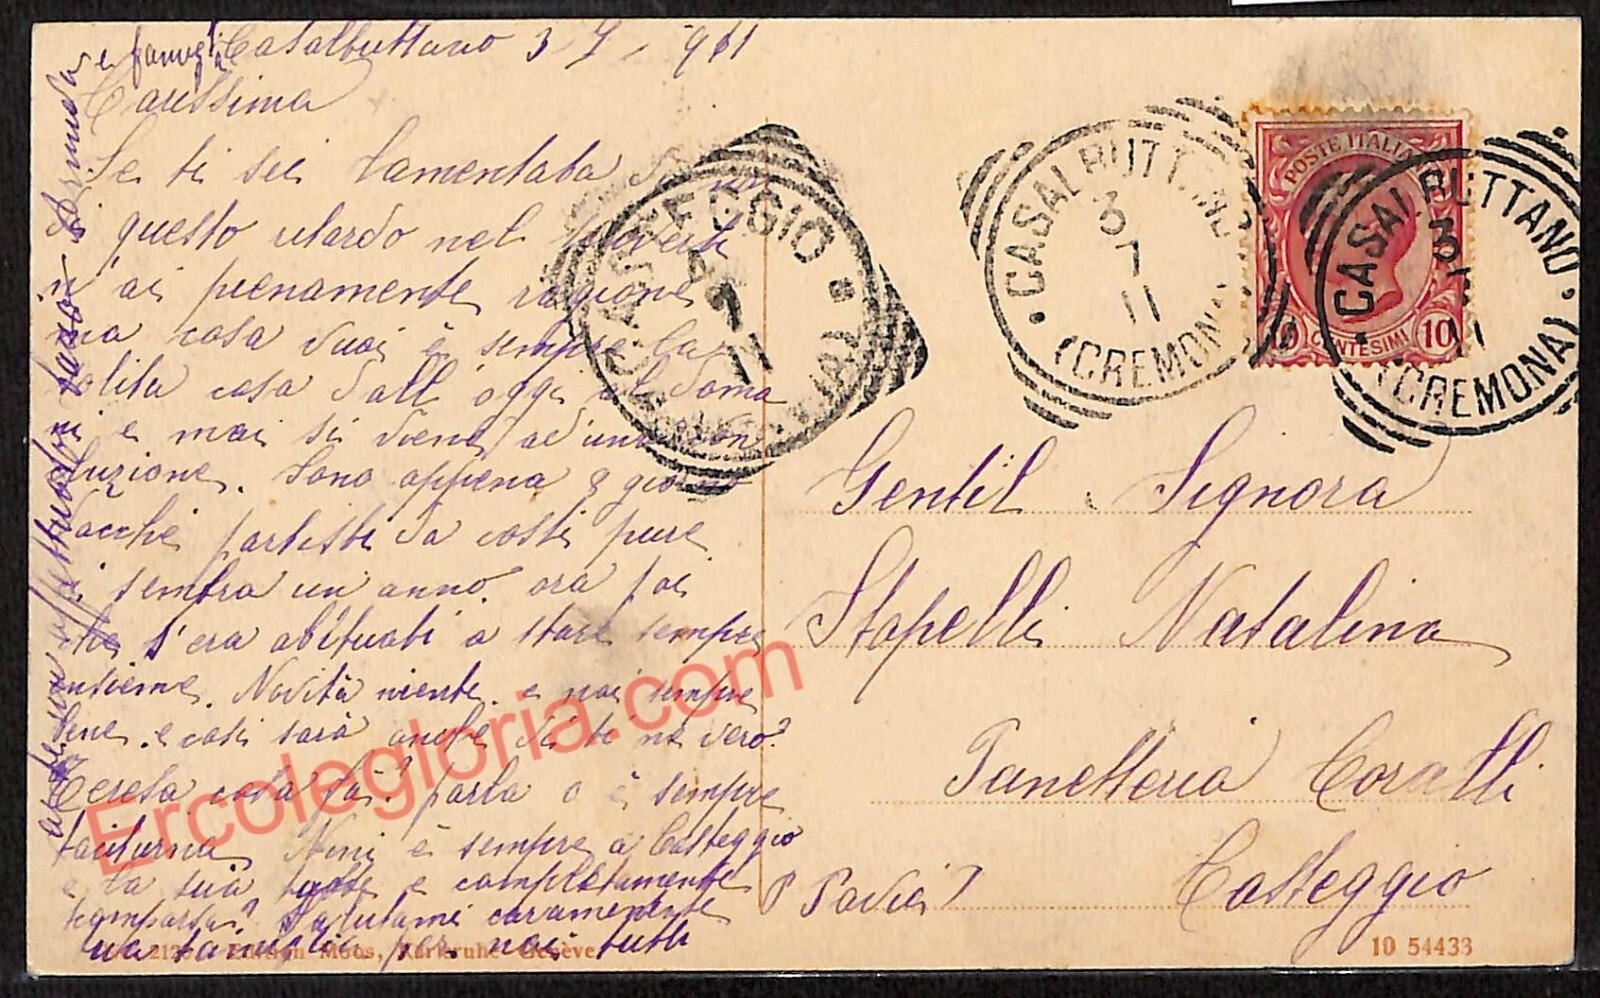 Casalbuttano 3-7-911
Carissima
Se ti sei lamentata di
di questo ritardo nel
n'ai pienamente ragione
ma cosa vuoi è sempre la
solita cosa dall'oggi al doma
ni e mai si viene ad una con
cluzione. Sono appena 8 giorni
dacchè partisti da costi pure
ci sembra un anno. ora poi
che s'era abituati a stare sempre
insieme. Novità niente. e noi sempre
bene. e così sarà anche di te ne vero?
Teresa cosa fà? parla o è sempre
taciturna. Nini è sempre a Casteggio
e la sua tosse e completamente
scomparsa? Salutami caramente
la famiglia per noi tutti
un affettuoso bacio
e famiglia
CASTEGGIO
(PAVIA)
7
11
CASALBUTTANO
3
7
11
(CREMONA)
POSTE ITALIANE
10 CENTESIMI 10
CASALBUTTANO
3
11
(CREMONA)
Gentil Signora
Stopelli Natalina
Panetteria Coralli
Casteggio
P Pavia
21 Edition Moos, Karlsruhe-Genève
10 54433
Ercolegloria.com